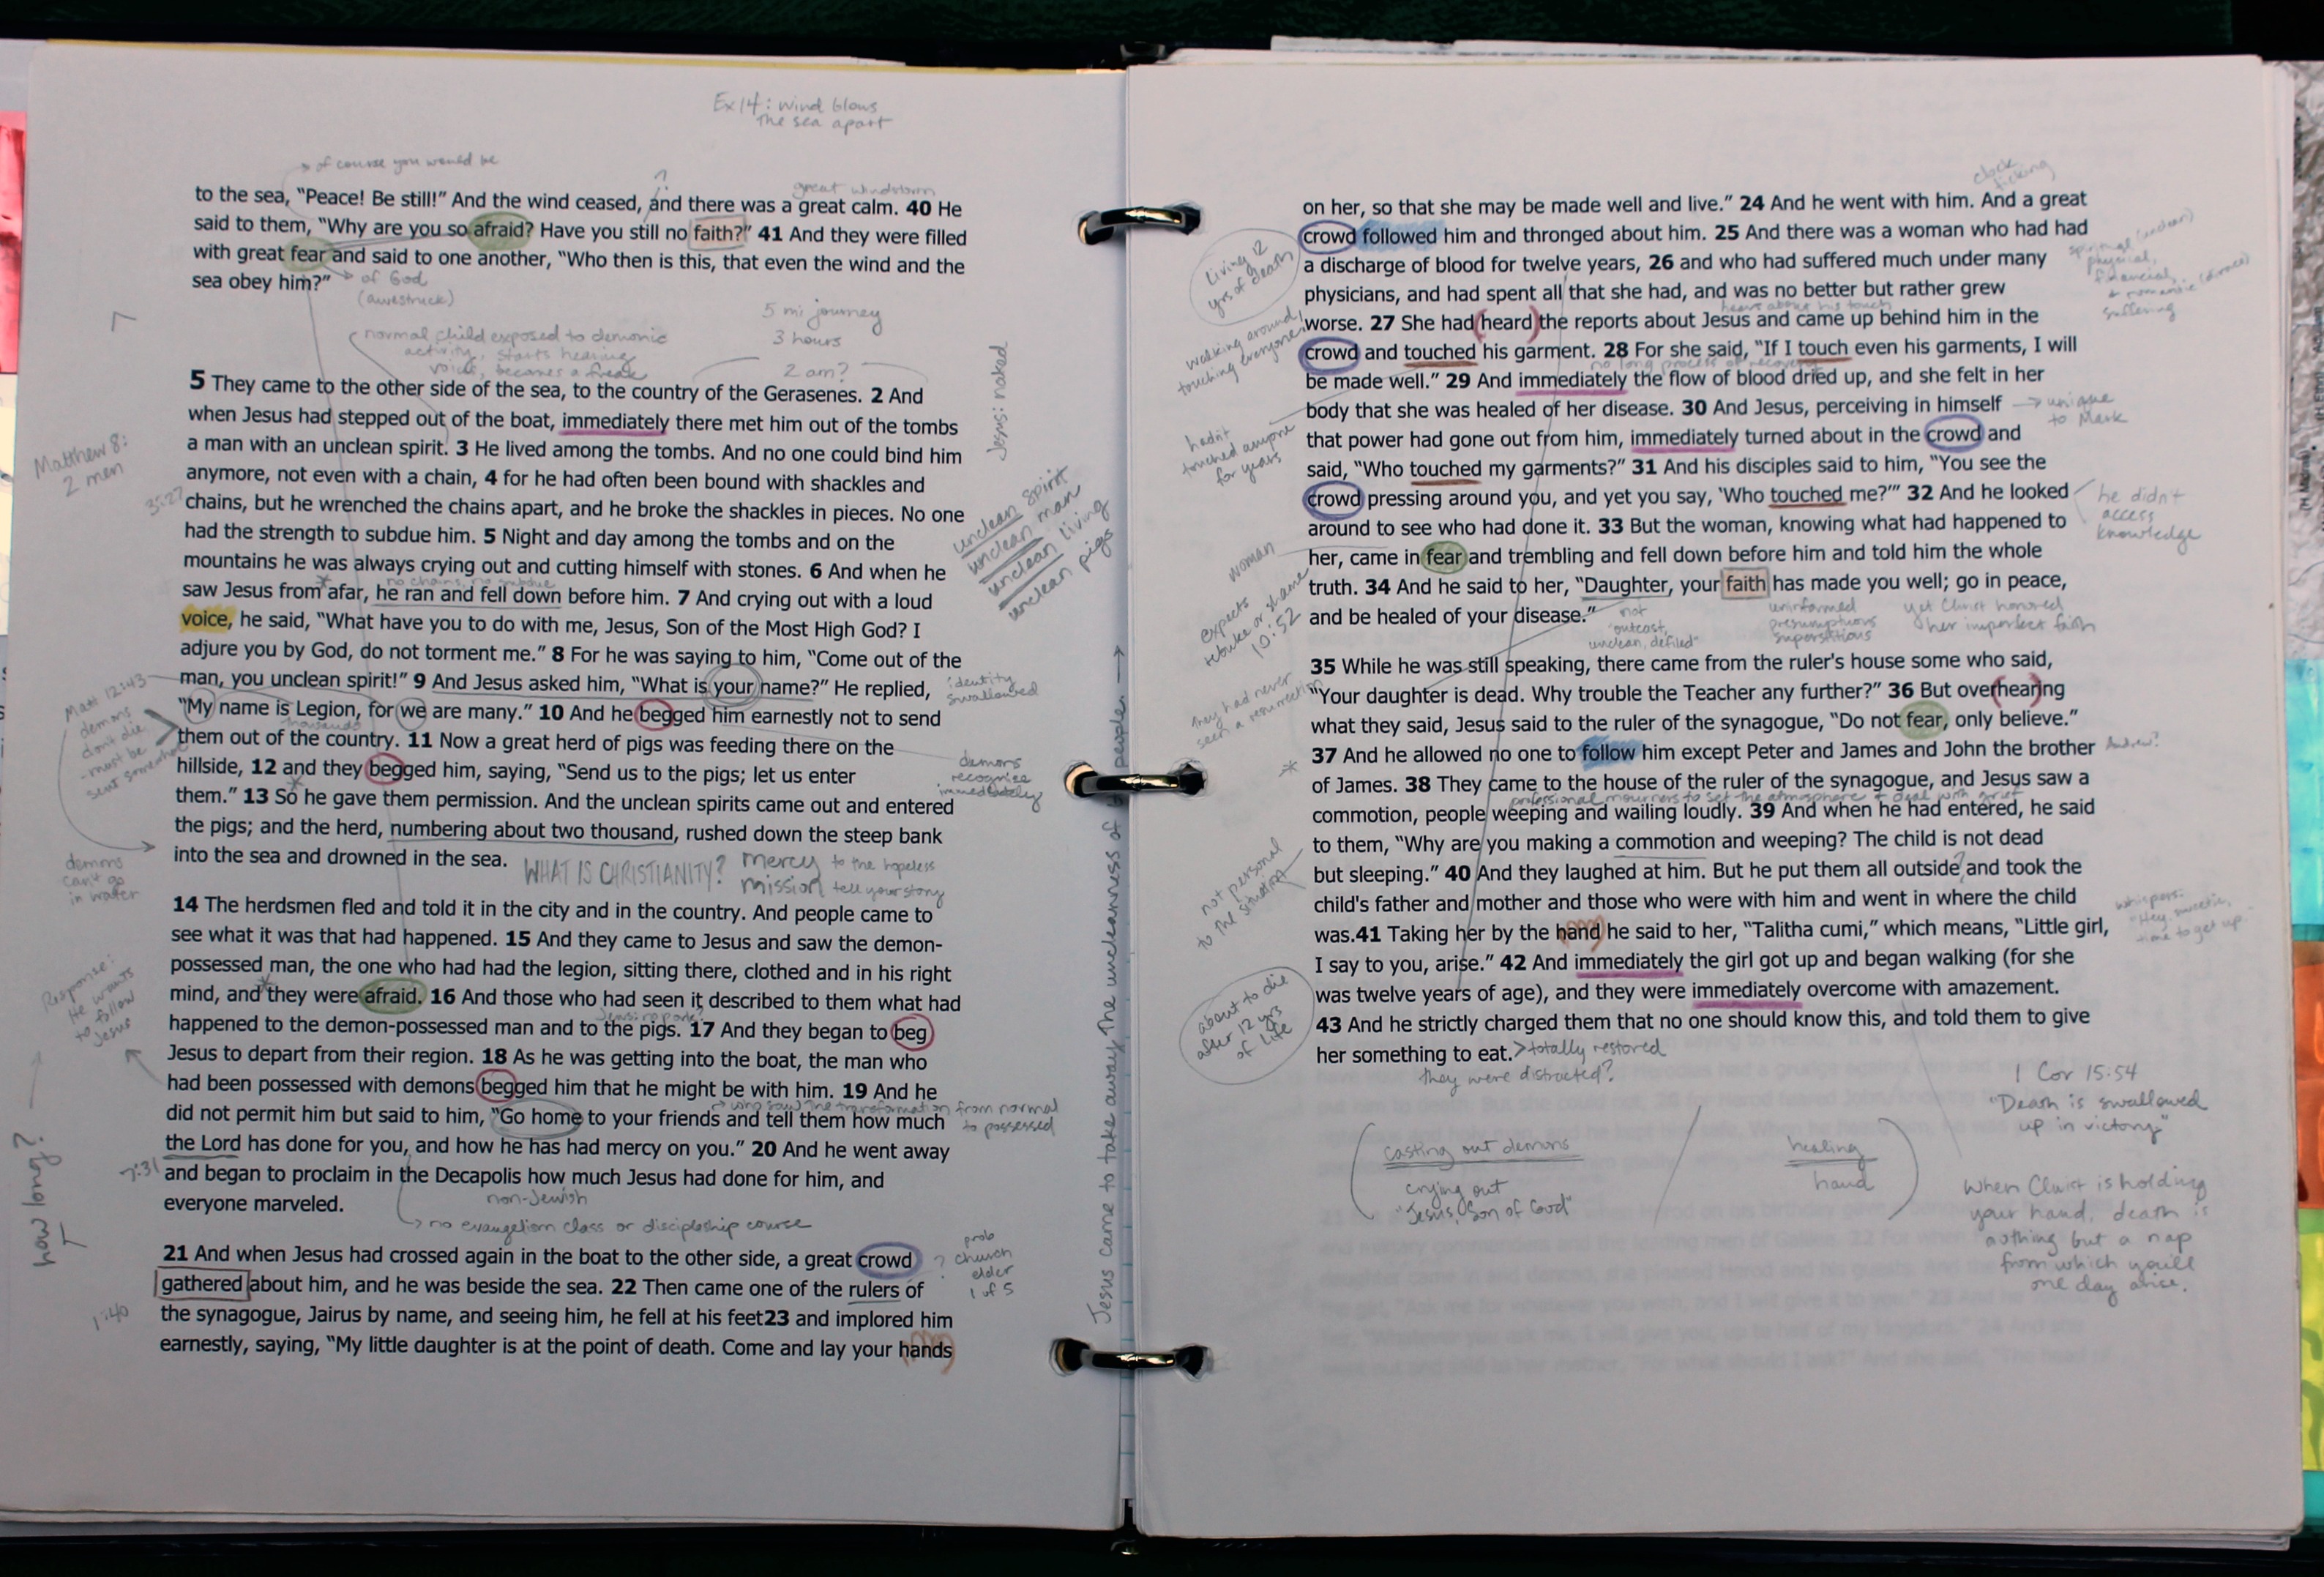 Ex 14: wind blows
the sea apart
of course you would be
?
great windstorm
to the sea, “Peace! Be still!” And the wind ceased, and there was a great calm. 40 He
said to them, “Why are you so afraid? Have you still no faith?” 41 And they were filled
with great fear and said to one another, “Who then is this, that even the wind and the
sea obey him?”
of God
(awestruck)
5 mi journey
3 hours
2 am?
normal child exposed to demonic
activity, starts hearing
voices, becomes a freak
Jesus: naked
5 They came to the other side of the sea, to the country of the Gerasenes. 2 And
when Jesus had stepped out of the boat, immediately there met him out of the tombs
a man with an unclean spirit. 3 He lived among the tombs. And no one could bind him
anymore, not even with a chain, 4 for he had often been bound with shackles and
chains, but he wrenched the chains apart, and he broke the shackles in pieces. No one
had the strength to subdue him. 5 Night and day among the tombs and on the
mountains he was always crying out and cutting himself with stones. 6 And when he
no chains, no subdue
saw Jesus from afar, he ran and fell down before him. 7 And crying out with a loud
voice, he said, “What have you to do with me, Jesus, Son of the Most High God? I
adjure you by God, do not torment me.” 8 For he was saying to him, “Come out of the
man, you unclean spirit!” 9 And Jesus asked him, “What is your name?” He replied,
“My name is Legion, for we are many.” 10 And he begged him earnestly not to send
thousands
them out of the country. 11 Now a great herd of pigs was feeding there on the
hillside, 12 and they begged him, saying, “Send us to the pigs; let us enter
them.” 13 So he gave them permission. And the unclean spirits came out and entered
the pigs; and the herd, numbering about two thousand, rushed down the steep bank
into the sea and drowned in the sea.
Matthew 8:
2 men
3:27
unclean spirit
unclean man
unclean living
unclean pigs
identity
swallowed
Matt 12:43
demons
don't die
- must be
sent somewhere
demons
recognize
immediately
demons
can't go
in water
WHAT IS CHRISTIANITY?
mercy to the hopeless
mission tell your story
14 The herdsmen fled and told it in the city and in the country. And people came to
see what it was that had happened. 15 And they came to Jesus and saw the demon-
possessed man, the one who had had the legion, sitting there, clothed and in his right
mind, and they were afraid. 16 And those who had seen it described to them what had
happened to the demon-possessed man and to the pigs. 17 And they began to beg
Jesus to depart from their region. 18 As he was getting into the boat, the man who
had been possessed with demons begged him that he might be with him. 19 And he
who saw the transformation from normal
to possessed
did not permit him but said to him, “Go home to your friends and tell them how much
the Lord has done for you, and how he has had mercy on you.” 20 And he went away
and began to proclaim in the Decapolis how much Jesus had done for him, and
everyone marveled.
Response:
He wants
to follow
Jesus
how long?
7:31
non-Jewish
no evangelism class or discipleship course
21 And when Jesus had crossed again in the boat to the other side, a great crowd
gathered about him, and he was beside the sea. 22 Then came one of the rulers of
the synagogue, Jairus by name, and seeing him, he fell at his feet23 and implored him
earnestly, saying, “My little daughter is at the point of death. Come and lay your hands
?
prob
church
elder
1 of 5
1:40
Jesus came to take away the uncleanness of people
clock
ticking
on her, so that she may be made well and live.” 24 And he went with him. And a great
crowd followed him and thronged about him. 25 And there was a woman who had had
a discharge of blood for twelve years, 26 and who had suffered much under many
physicians, and had spent all that she had, and was no better but rather grew
hears about his touch
worse. 27 She had (heard) the reports about Jesus and came up behind him in the
crowd and touched his garment. 28 For she said, “If I touch even his garments, I will
no long process of recovery
be made well.” 29 And immediately the flow of blood dried up, and she felt in her
body that she was healed of her disease. 30 And Jesus, perceiving in himself
that power had gone out from him, immediately turned about in the crowd and
said, “Who touched my garments?” 31 And his disciples said to him, “You see the
crowd pressing around you, and yet you say, ‘Who touched me?’” 32 And he looked
around to see who had done it. 33 But the woman, knowing what had happened to
her, came in fear and trembling and fell down before him and told him the whole
truth. 34 And he said to her, “Daughter, your faith has made you well; go in peace,
and be healed of your disease.”
living 12
yrs of death
spiritual (unclean)
physical,
financial,
+ romantic (divorce)
suffering
walking around,
touching everyone
hadn't
touched anyone
for years
unique
to Mark
he didn't
access
knowledge
woman
expects
rebuke or shame
10:52
not
"outcast,
unclean, defiled"
uninformed
presumptuous
superstitious
yet Christ honored
her imperfect faith
35 While he was still speaking, there came from the ruler's house some who said,
“Your daughter is dead. Why trouble the Teacher any further?” 36 But over(hear)ing
what they said, Jesus said to the ruler of the synagogue, “Do not fear, only believe.”
37 And he allowed no one to follow him except Peter and James and John the brother
Andrew?
of James. 38 They came to the house of the ruler of the synagogue, and Jesus saw a
professional mourners to set the atmosphere + deal with grief
commotion, people weeping and wailing loudly. 39 And when he had entered, he said
to them, “Why are you making a commotion and weeping? The child is not dead
but sleeping.” 40 And they laughed at him. But he put them all outside and took the
child's father and mother and those who were with him and went in where the child
was.41 Taking her by the hand he said to her, “Talitha cumi,” which means, “Little girl,
I say to you, arise.” 42 And immediately the girl got up and began walking (for she
was twelve years of age), and they were immediately overcome with amazement.
43 And he strictly charged them that no one should know this, and told them to give
her something to eat.
they had never
seen a resurrection
not personal
to the situation
whispers:
"Hey, sweetie,
time to get up."
about to die
after 12 yrs
of life
totally restored
they were distracted?
1 Cor 15:54
"Death is swallowed
up in victory"
casting out demons
crying out
"Jesus, Son of God"
healing
hand
When Christ is holding
your hand, death is
nothing but a nap
from which you'll
one day arise.